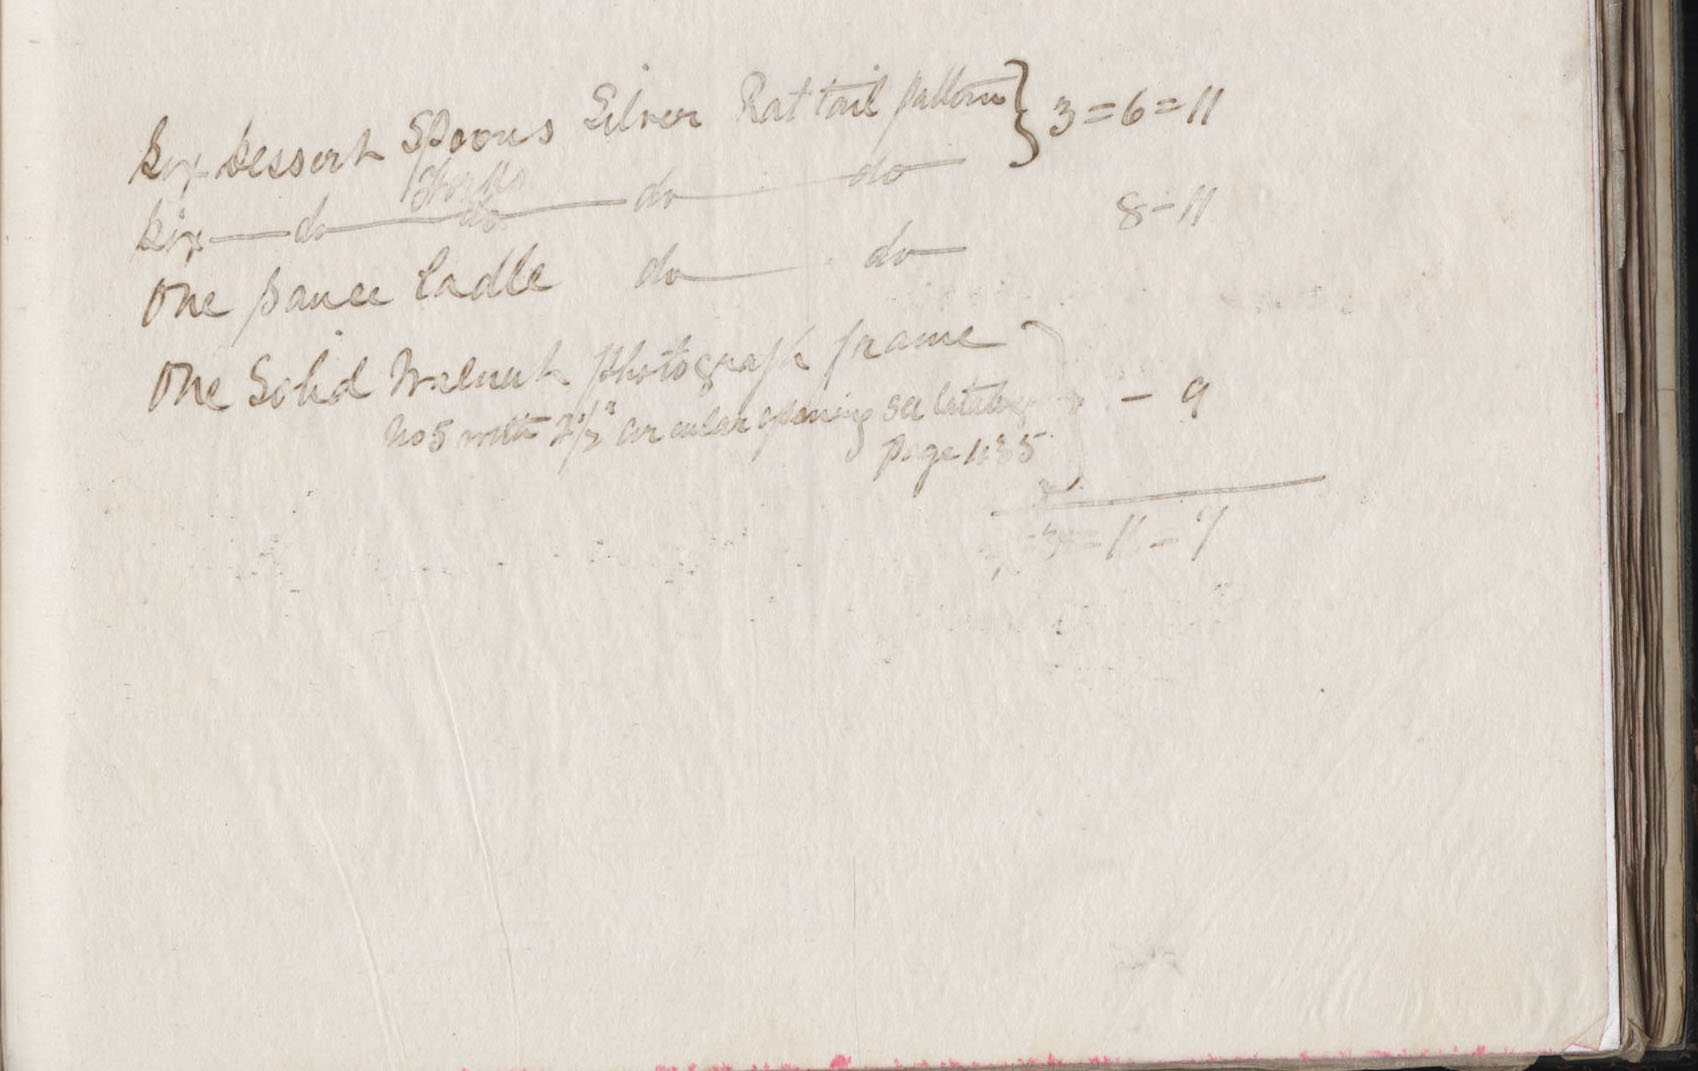 Six Dessert Spoons Silver Rat tail pattern } 3=6=11
Forks
Six — do — do — do — do
One Sauce Ladle do — do — 8-11
One Solid Walnut photograph frame
No 5 with 2½" circular opening see Catalog } - 9
Page 1135
3=11-7